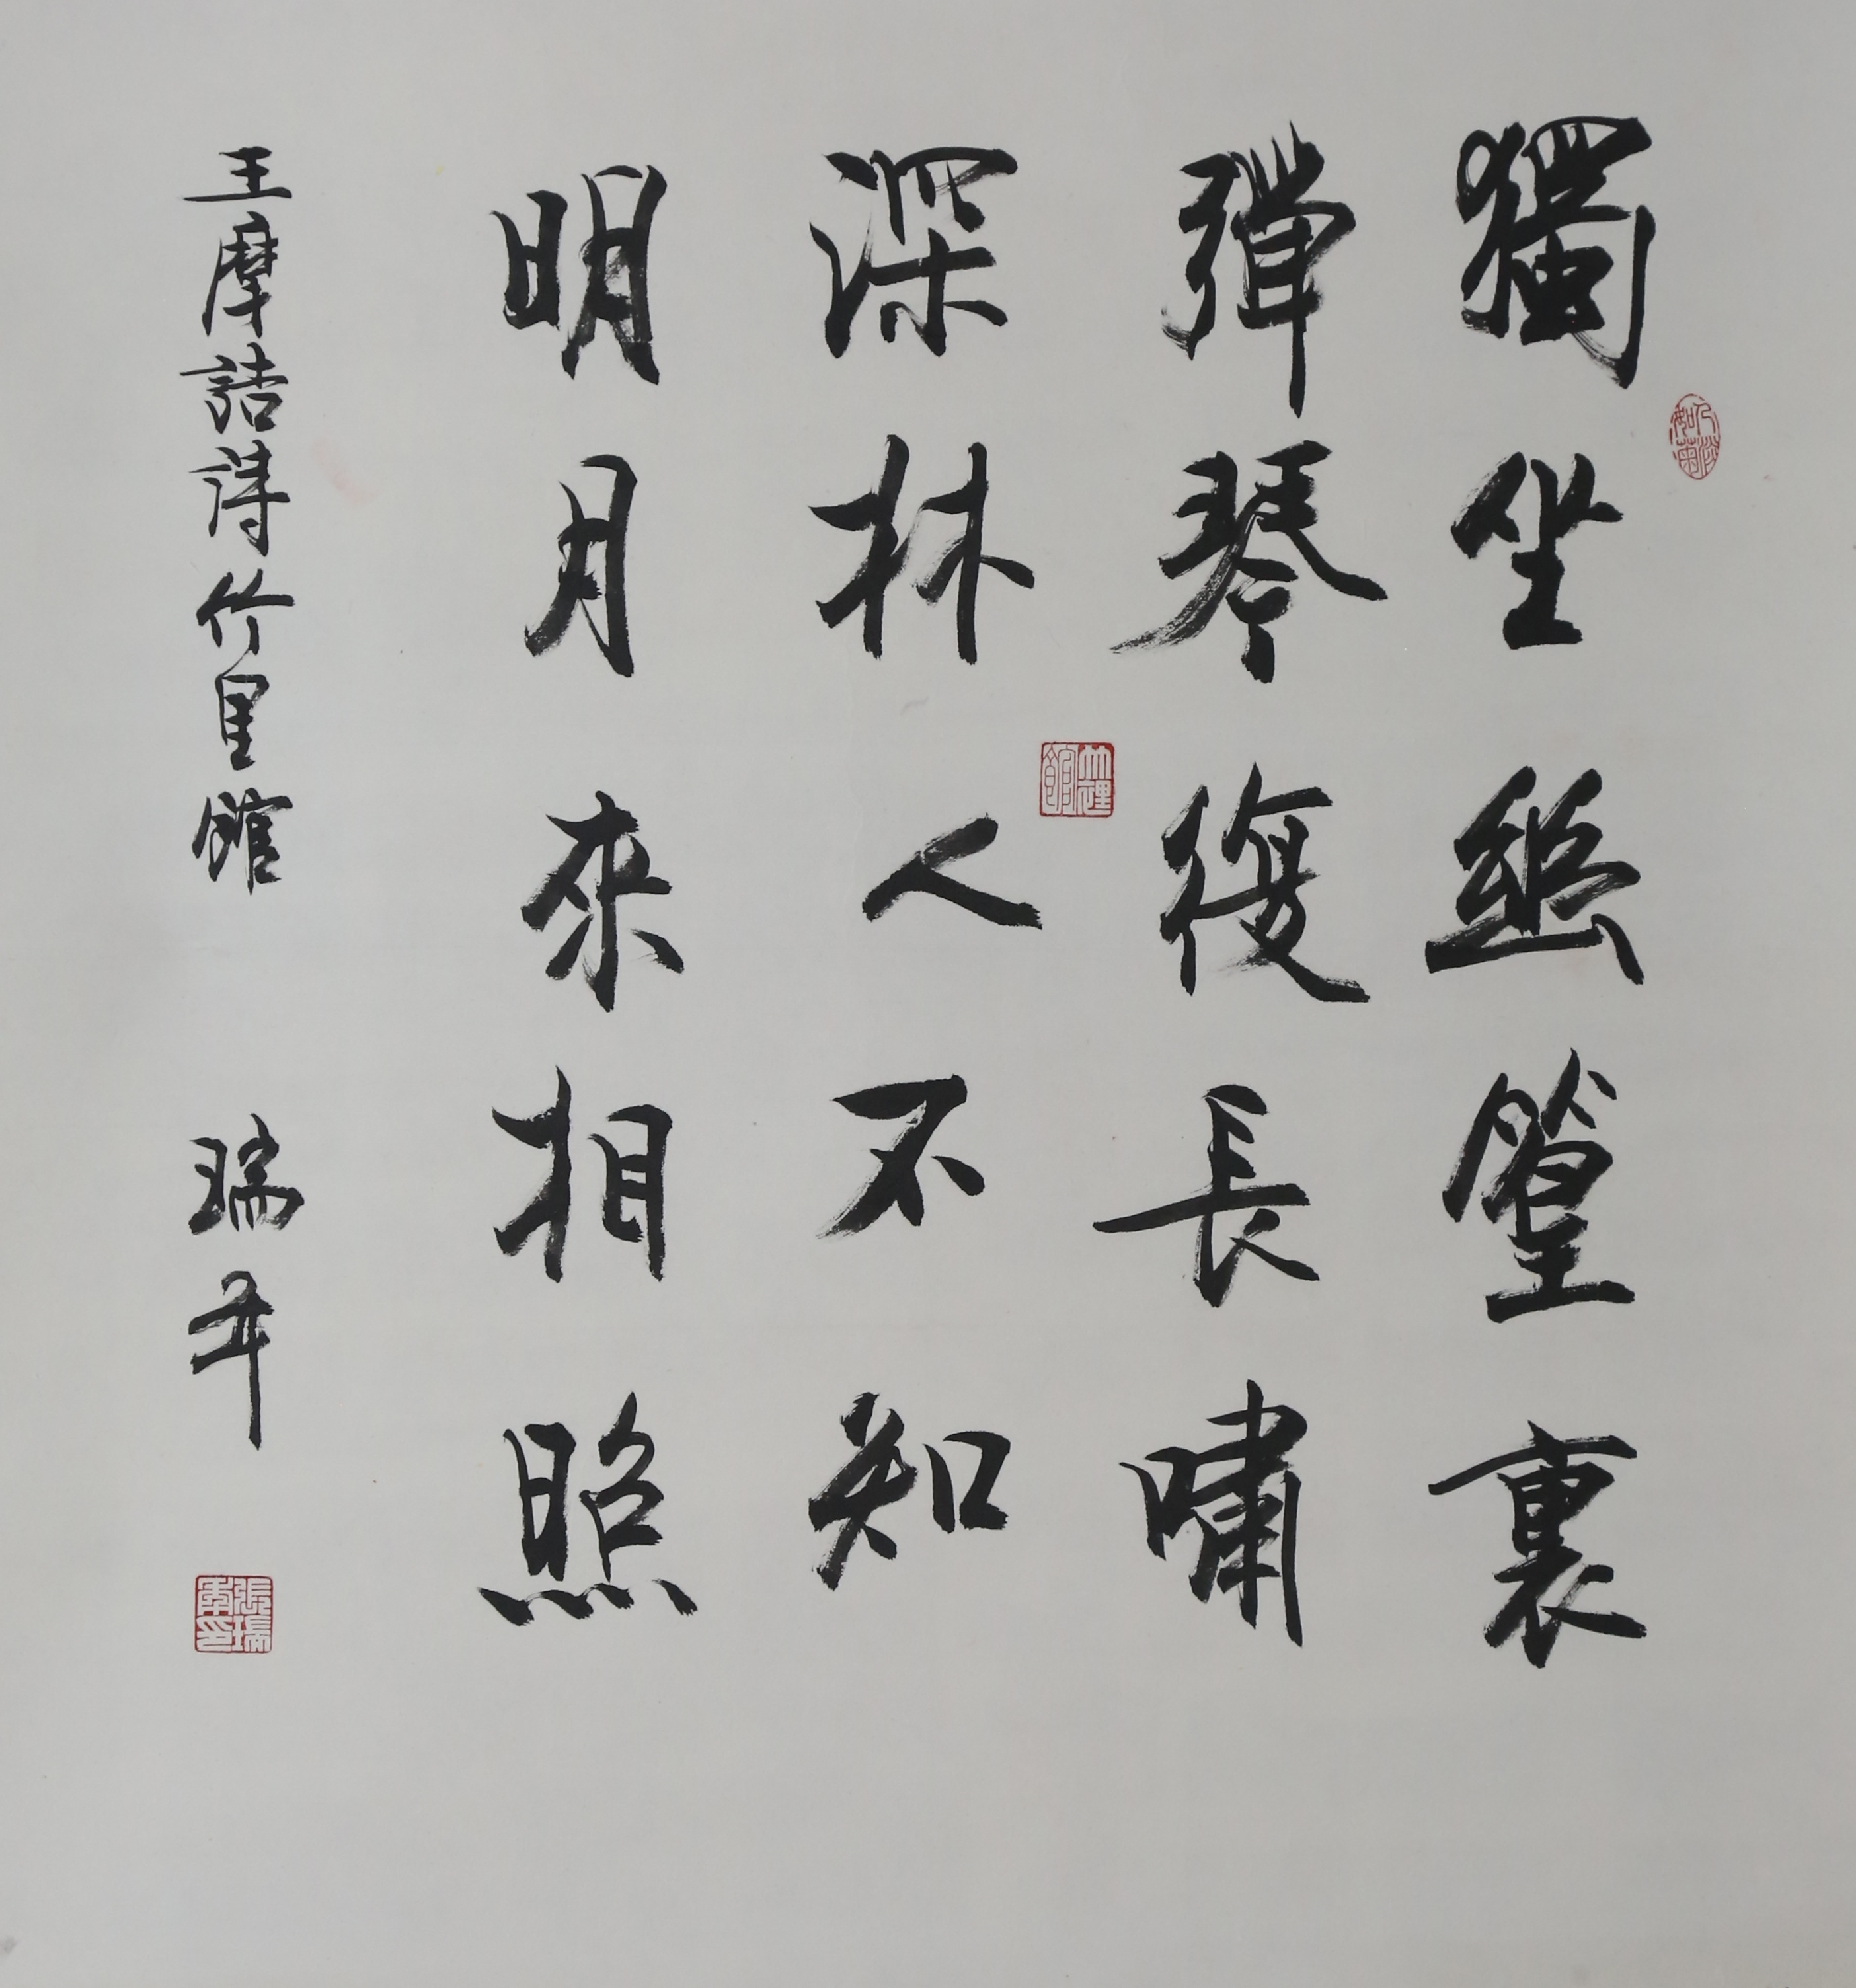 獨坐幽篁裏
人淡如菊
彈琴復長嘯
竹里館
深林人不知
明月來相照
王摩詰詩竹里館 瑞年
張瑞年印